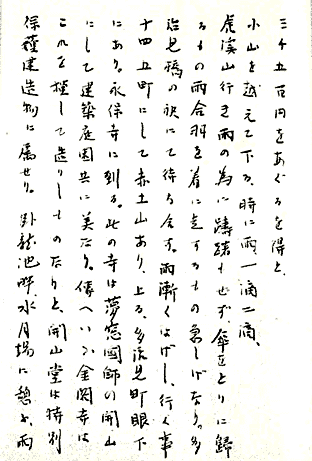 三千五百円をあぐるを得と、
小山を越えて下る、時に雨一滴二滴、
虎渓山行き雨の為に躊躇もせず、傘をとりに歸
るもの雨合羽を着に走るもの気しげなり。多
治見橋の袂にて待ち合す。雨漸くはげし、行く事
十四五町にして赤土山あり、上る、多治見町眼下
にあり。永保寺に到る。此の寺は夢窓國師の開山
にして建築庭園共に美なり。傳へいふ金閣寺は
これを模して造りしものなりと、開山堂は特別
保護建造物に属せり。臥龍池畔、水月場に憩ふ、雨